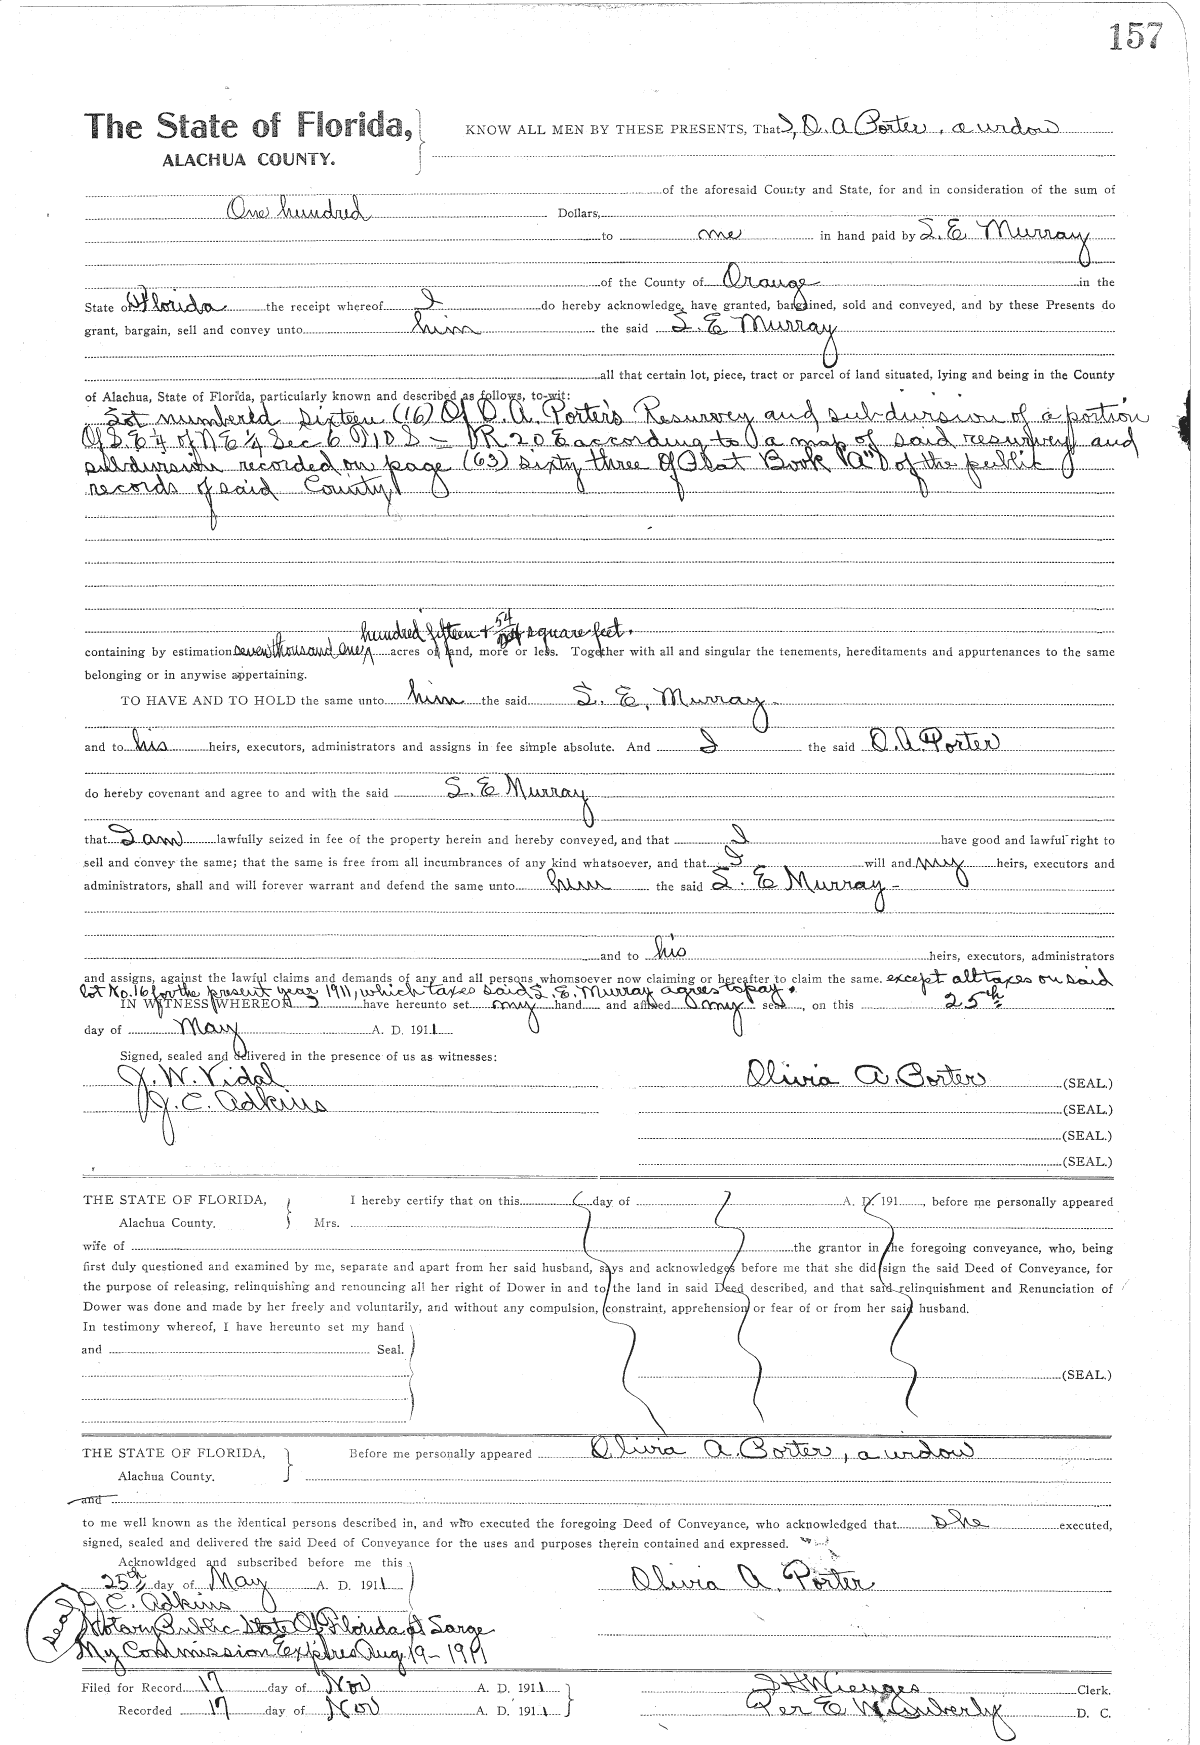 157
The State of Florida, KNOW ALL MEN BY THESE PRESENTS, That I, O. A Porter, a widow
ALACHUA COUNTY.
of the aforesaid County and State, for and in consideration of the sum of
One hundred Dollars,
to me in hand paid by S. E. Murray
of the County of Orange in the
State of Florida the receipt whereof I do hereby acknowledge, have granted, bargained, sold and conveyed, and by these Presents do
grant, bargain, sell and convey unto him the said S. E Murray
all that certain lot, piece, tract or parcel of land situated, lying and being in the County
of Alachua, State of Florida, particularly known and described as follows, to-wit:
Lot numbered Sixteen (16) Of O. A. Porter's Resurvey and subdivision of a portion
Of S. E ¼ of N E ¼ Sec 6 10 S - R 20 E according to a map of said resurvey and
subdivision recorded on page (63) sixty three Of Plat Book "A" of the public
records of said County
hundred fifteen + 54 square feet.
containing by estimation seven thousand one acres of land, more or less. Together with all and singular the tenements, hereditaments and appurtenances to the same
belonging or in anywise appertaining.
TO HAVE AND TO HOLD the same unto him the said S. E. Murray -
and to his heirs, executors, administrators and assigns in fee simple absolute. And I the said O. A. Porter
do hereby covenant and agree to and with the said S. E Murray
that I am lawfully seized in fee of the property herein and hereby conveyed, and that I have good and lawful right to
sell and convey the same; that the same is free from all incumbrances of any kind whatsoever, and that I will and my heirs, executors and
administrators, shall and will forever warrant and defend the same unto him the said S. E Murray -
and to his heirs, executors, administrators
and assigns, against the lawful claims and demands of any and all persons whomsoever now claiming or hereafter to claim the same. except all taxes on said
lot No. 16 for the present year 1911, which taxes said S. E. Murray agrees to pay.
IN WITNESS WHEREOF I have hereunto set my hand and affixed my seal, on this 25th
day of May A. D. 1911
Signed, sealed and delivered in the presence of us as witnesses:
J. W. Vidal Olivia A. Porter (SEAL.)
J. C. Adkins (SEAL.)
(SEAL.)
(SEAL.)
THE STATE OF FLORIDA, I hereby certify that on this day of A. D. 191 , before me personally appeared
Alachua County. Mrs.
wife of the grantor in the foregoing conveyance, who, being
first duly questioned and examined by me, separate and apart from her said husband, says and acknowledges before me that she did sign the said Deed of Conveyance, for
the purpose of releasing, relinquishing and renouncing all her right of Dower in and to the land in said Deed described, and that said relinquishment and Renunciation of
Dower was done and made by her freely and voluntarily, and without any compulsion, constraint, apprehension or fear of or from her said husband.
In testimony whereof, I have hereunto set my hand
and Seal.
(SEAL.)
THE STATE OF FLORIDA, Before me personally appeared Olivia A. Porter, a widow
Alachua County.
and
to me well known as the identical persons described in, and who executed the foregoing Deed of Conveyance, who acknowledged that she executed,
signed, sealed and delivered the said Deed of Conveyance for the uses and purposes therein contained and expressed.
Acknowldged and subscribed before me this
25th day of May A. D. 1911 Olivia A. Porter
J. C. Adkins
Seal Notary Public State Of Florida at Large
My Commission Expires Aug. 19 - 1911
Filed for Record 17 day of Nov A. D. 1911 S H Wienges Clerk.
Recorded 17 day of Nov A. D. 1911 Per E Wimberly D. C.